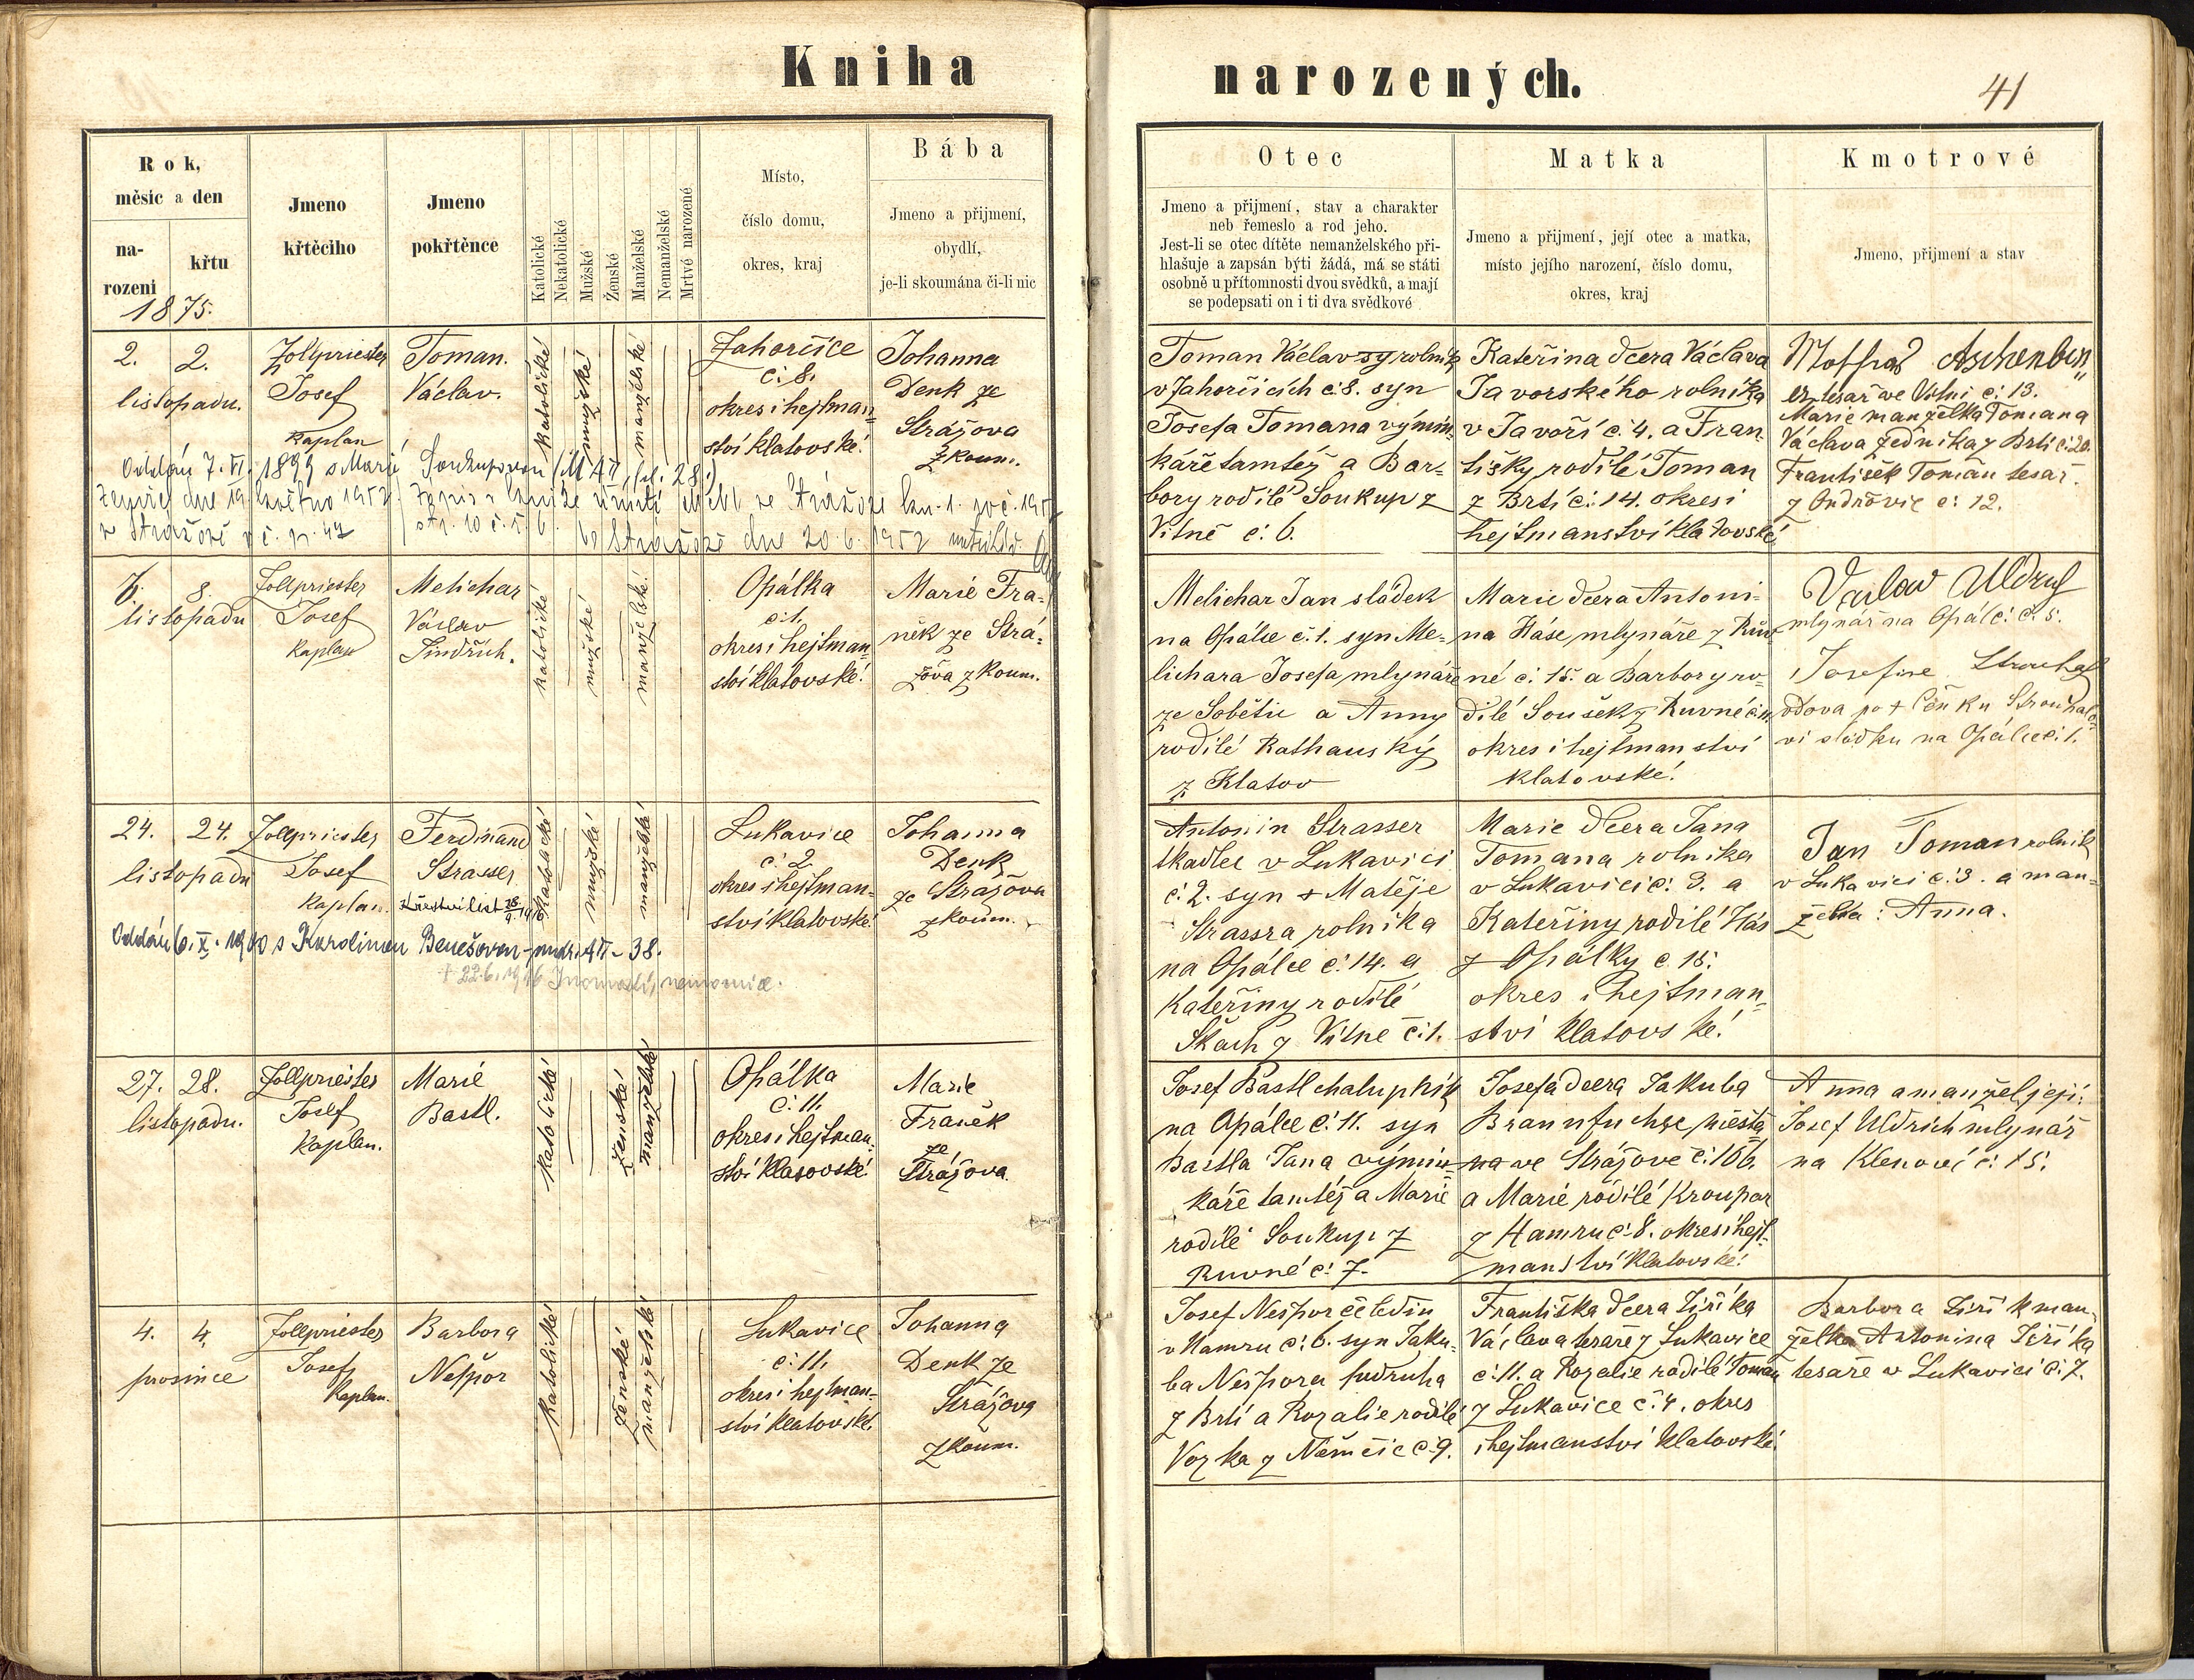 Kniha
narozených.
41
Rok,
měsíc a den
na-
rozeni
křtu
1875.
Jmeno
křtěcího
Jmeno
pokřtěnce
Katolické
Nekatolické
Mužské
Ženské
Manželské
Nemanželské
Mrtvé narozené
Místo,
číslo domu,
okres, kraj
Bába
Jmeno a přijmení,
obydlí,
je-li skoumána či-li nic
Otec
Jmeno a přijmení, stav a charakter
neb řemeslo a rod jeho.
Jest-li se otec dítěte nemanželského při-
hlašuje a zapsán býti žádá, má se státi
osobně u přítomnosti dvou svědků, a mají
se podepsati on i ti dva svědkové
Matka
Jmeno a přijmení, její otec a matka,
místo jejího narození, číslo domu,
okres, kraj
Kmotrové
Jmeno, přijmení a stav
2. 2.
listopadu.
Zollpriester
Josef
Kaplan
Toman.
Václav.
katolické
mužské
manželské
Zahorčice
č: 8.
okres i hejtman-
ství klatovské.
Johanna
Denk ze
Strážova
zkoum.
Toman Václav rolník
v Zahorčicích č: 8. syn
Josefa Tomana výmin-
káře tamtéž a Bar-
bory rodilé Soukup z
Vítně č: 6.
Kateřina dcera Václava
Javorského rolníka
v Javoří č: 4. a Fran-
tišky rodilé Toman
z Brtí č: 14. okres i
hejtmanství klatovské
Aschenbren
er tesař ve Vítni č: 13.
Marie manželka Tomana
Václava zedníka z Brtí č: 20.
František Toman tesař
z Ondřovic č: 12.
Oddán 7. VI. 1899 s Marií Soukupovou
Zemřel dne 19. května 1952
v Strážově č. p. 42
Zápis v knize úmrtí
str. 10 č. ř. 6.
ve Strážově dne 20. 6. 1952
8.
listopadu
Zollpriester
Josef
Kaplan
Melichar
Václav
Jindřich.
katolické
mužské
manželské
Opálka
č: 1.
okres i hejtman-
ství klatovské.
Marie Fra-
něk ze Strá-
žova zkoum.
Melichar Jan sládek
na Opálce č: 1. syn Me-
lichara Josefa mlynáře
ze Sobětic a Anny
rodilé Rathauský
z Klatov
Marie dcera Antoni-
na Háse mlynáře z Ruv-
né č: 15. a Barbory ro-
dilé Soušek z Ruvné
okres i hejtmanství
klatovské.
Václav
mlynář na Opálc: č: 5.
Josefine Strouhal
vdova po + Čeňku Strouhalo-
vi sládku na Opálce č: 1.
24. 24.
listopadu
Zollpriester
Josef
Kaplan.
Ferdinand
Strasser
katolické
mužské
manželské
Lukavice
č: 2.
okres i hejtman-
ství klatovské.
Johanna
Denk
ze Strážova
zkoum.
Antonin Strasser
tkadlec v Lukavici
č: 2. syn + Matěje
Strassra rolníka
na Opálce č: 14. a
Kateřiny rodilé
Škach z Vítně č: 1.
Marie dcera Jana
Tomana rolníka
v Lukavici č: 3. a
Kateřiny rodilé Hás
z Opálky č. 15.
okres i hejtman-
ství klatovské.
Jan Toman rolník
v Lukavici č: 3. a man-
želka: Anna.
Oddán 6. X. 1900 s Karolinou Benešovou
27. 28.
listopadu.
Zollpriester
Josef
Kaplan.
Marie
Bastl.
katolické
ženské
manželské
Opálka
č: 11.
okres i hejtman-
ství klatovské.
Marie
Franěk
ze
Strážova.
Josef Bastl chalupník
na Opálce č: 11. syn
Bastla Jana výmin-
káře tamtéž a Marie
rodilé Soukup z
Ruvné č: 7.
Josefa dcera Jakuba
Braunfuchse měšťa-
na ve Strážově č: 106.
a Marie rodilé Kroupar
z Hamru č: 8. okres i hejt-
manství klatovské.
Anna a manžel její:
Josef Uldrich mlynář
na Klenové č: 15.
4. 4.
prosince
Zollpriester
Josef
Kaplan.
Barbora
Nešpor
katolické
ženské
manželské
Lukavice
č: 11.
okres i hejtman-
ství klatovské.
Johanna
Denk ze
Strážova
zkoum.
Josef Nešpor čeledín
v Hamru č: 6. syn Jaku-
ba Nešpora podruha
z Brtí a Rozalie rodilé
Vozka z Němčic č: 9.
Františka dcera Jiříka
Václava tesaře z Lukavice
č: 11. a Rozalie rodilé Toman
z Lukavice č: 4. okres
i hejtmanství klatovské.
Barbora Jiřík man-
želka Antonina Jiříka
tesaře v Lukavici č: 7.